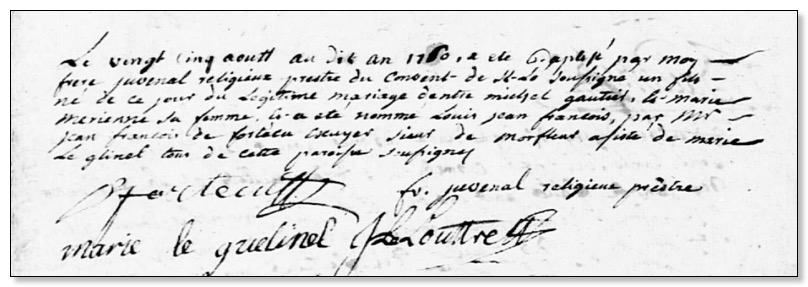 Le vingt cinq aoust au dit an 1760, a eté baptisé par moy
frere juvenal religieux prestre du Couvent de St Lo soussigné un fils
né de ce jour du Legitime mariage dentre michel gautier, & marie
merienne sa femme, & a eté nommé Louis jean francois, par Mr
jean francois de fortecu Ecuyer sieur de morfleur asisté de marie
Le glinel tous de cette paroisse soussignes
Fortecu fr. juvenal religieux prestre
marie le guelinel J Le Louttre